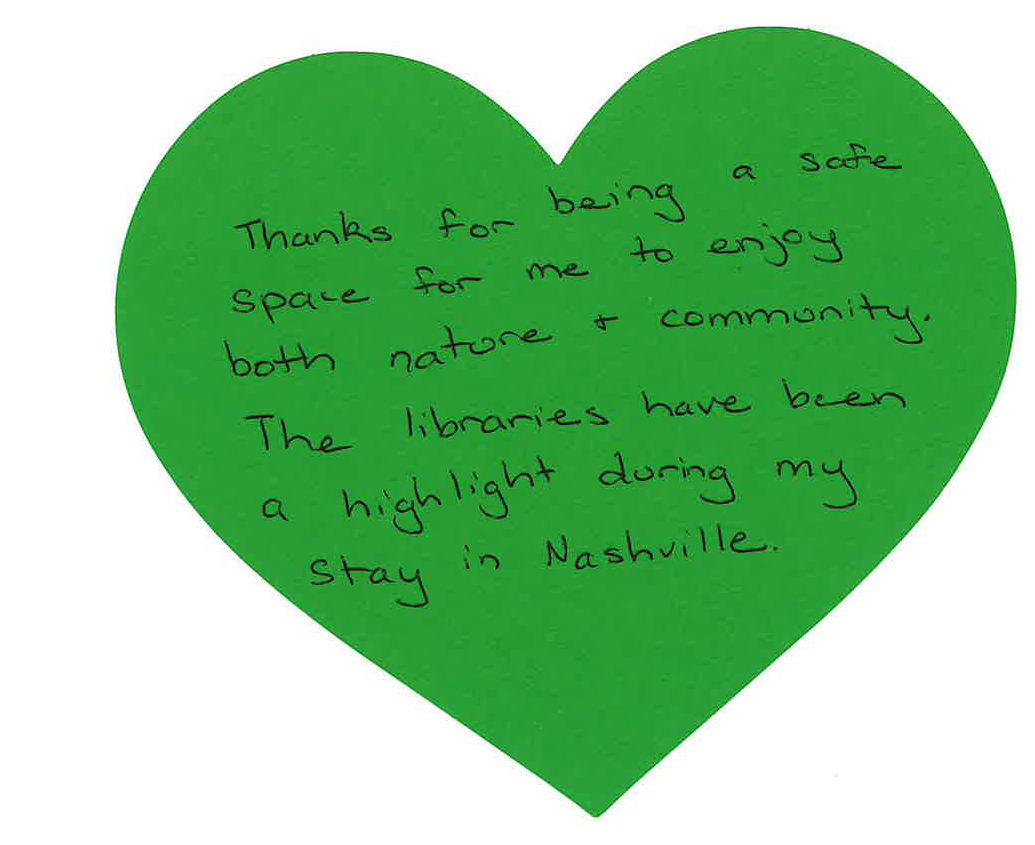 Thanks for being a safe
space for me to enjoy
both nature + community.
The libraries have been
a highlight during my
stay in Nashville.